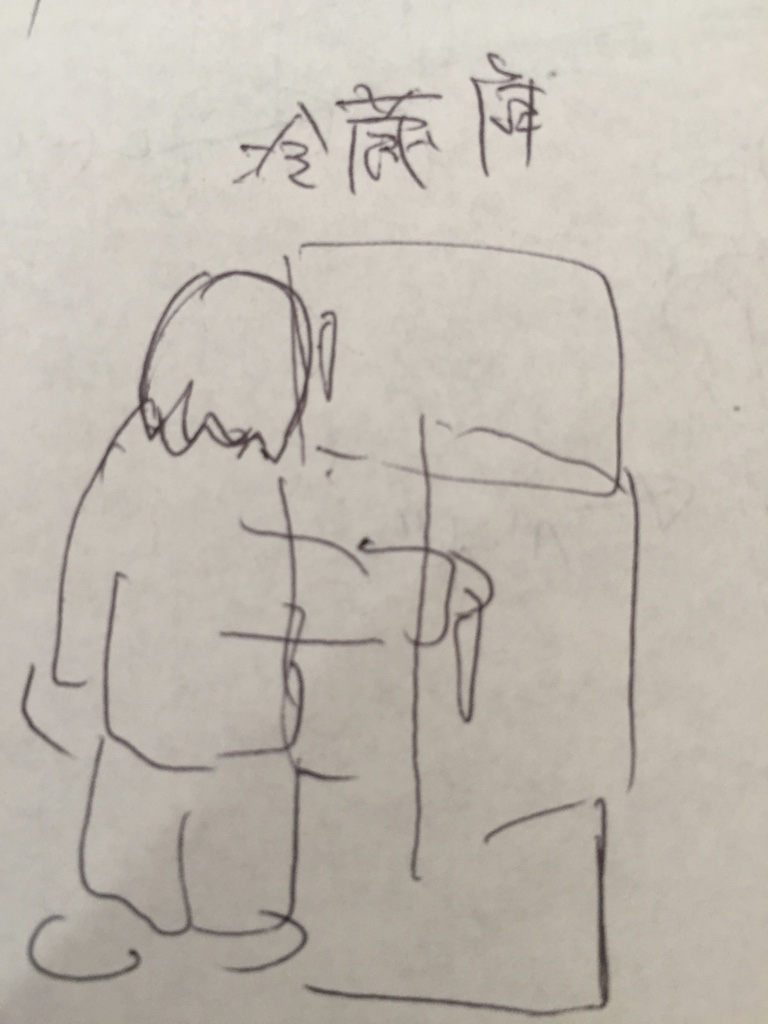 冷蔵庫